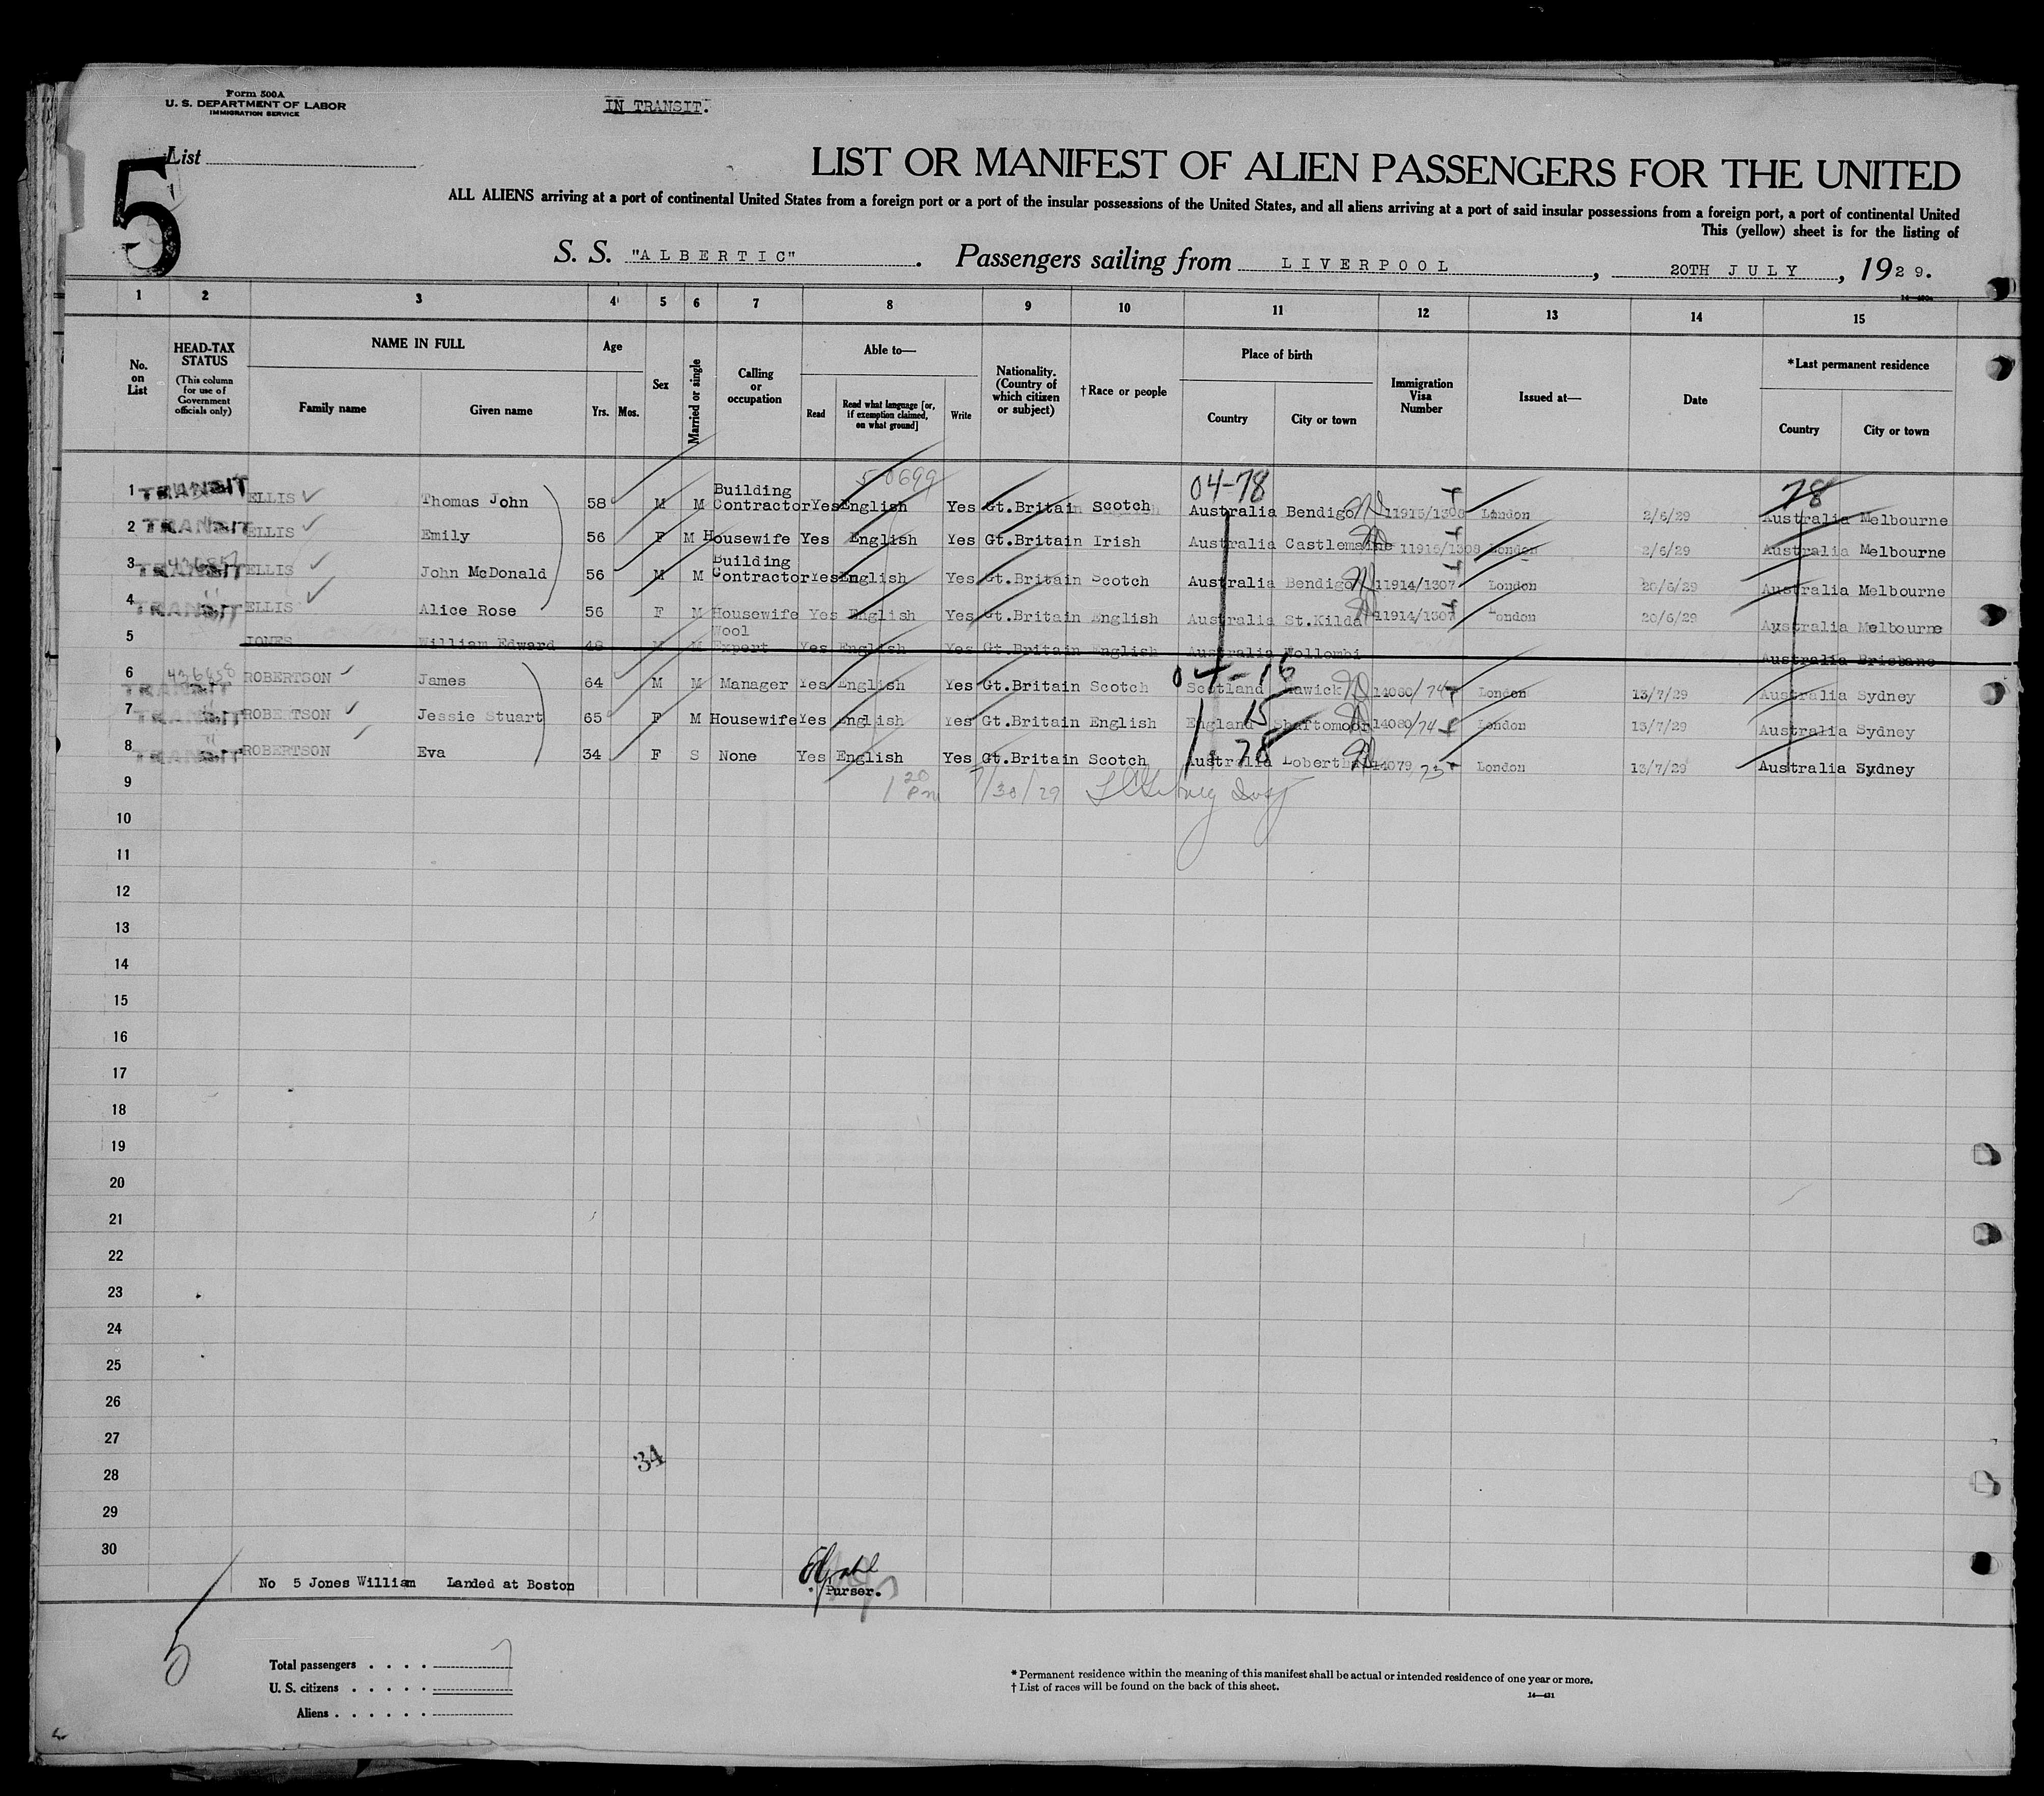 Form 500A
U. S. DEPARTMENT OF LABOR
IMMIGRATION SERVICE
IN TRANSIT.
List
5
LIST OR MANIFEST OF ALIEN PASSENGERS FOR THE UNITED
ALL ALIENS arriving at a port of continental United States from a foreign port or a port of the insular possessions of the United States, and all aliens arriving at a port of said insular possessions from a foreign port, a port of continental United
This (yellow) sheet is for the listing of
S. S. "ALBERTIC". Passengers sailing from LIVERPOOL, 20TH JULY, 1929.
1 2 3 4 5 6 7 8 9 10 11 12 13 14 15
No. on List
HEAD-TAX STATUS (This column for use of Government officials only)
NAME IN FULL
Family name Given name
Age
Yrs. Mos.
Sex
Married or single
Calling or occupation
Able to—
Read Read what language [or, if exemption claimed, on what ground] Write
Nationality. (Country of which citizen or subject)
†Race or people
Place of birth
Country City or town
Immigration Visa Number
Issued at—
Date
*Last permanent residence
Country City or town
50699 04-78 78
1 TRANSIT ELLIS Thomas John 58 M M Building Contractor Yes English Yes Gt.Britain Scotch Australia Bendigo 11915/1308 London 2/6/29 Australia Melbourne
2 TRANSIT ELLIS Emily 56 F M Housewife Yes English Yes Gt.Britain Irish Australia Castlemaine 11915/1308 London 2/6/29 Australia Melbourne
3 TRANSIT ELLIS John McDonald 56 M M Building Contractor Yes English Yes Gt.Britain Scotch Australia Bendigo 11914/1307 London 20/6/29 Australia Melbourne
4 TRANSIT ELLIS Alice Rose 56 F M Housewife Yes English Yes Gt.Britain English Australia St.Kilda 11914/1307 London 20/6/29 Australia Melbourne
5 JONES William Edward 48 M M Wool Expert Yes English Yes Gt.Britain English Australia Wollombi Australia Brisbane
04-16
6 TRANSIT ROBERTSON James 64 M M Manager Yes English Yes Gt.Britain Scotch Scotland Hawick 14080/74 London 13/7/29 Australia Sydney
7 TRANSIT ROBERTSON Jessie Stuart 65 F M Housewife Yes English Yes Gt.Britain English England 15 14080/74 London 13/7/29 Australia Sydney
8 TRANSIT ROBERTSON Eva 34 F S None Yes English Yes Gt.Britain Scotch Australia 78 14079 London 13/7/29 Australia Sydney
9 1 20 Pm 7/30/29
10
11
12
13
14
15
16
17
18
19
20
21
22
23
24
25
26
27
34
28
29
30
No 5 Jones William Landed at Boston
Purser.
5
Total passengers . . . . 7
U. S. citizens . . . . .
Aliens . . . . . .
* Permanent residence within the meaning of this manifest shall be actual or intended residence of one year or more.
† List of races will be found on the back of this sheet.
14—431